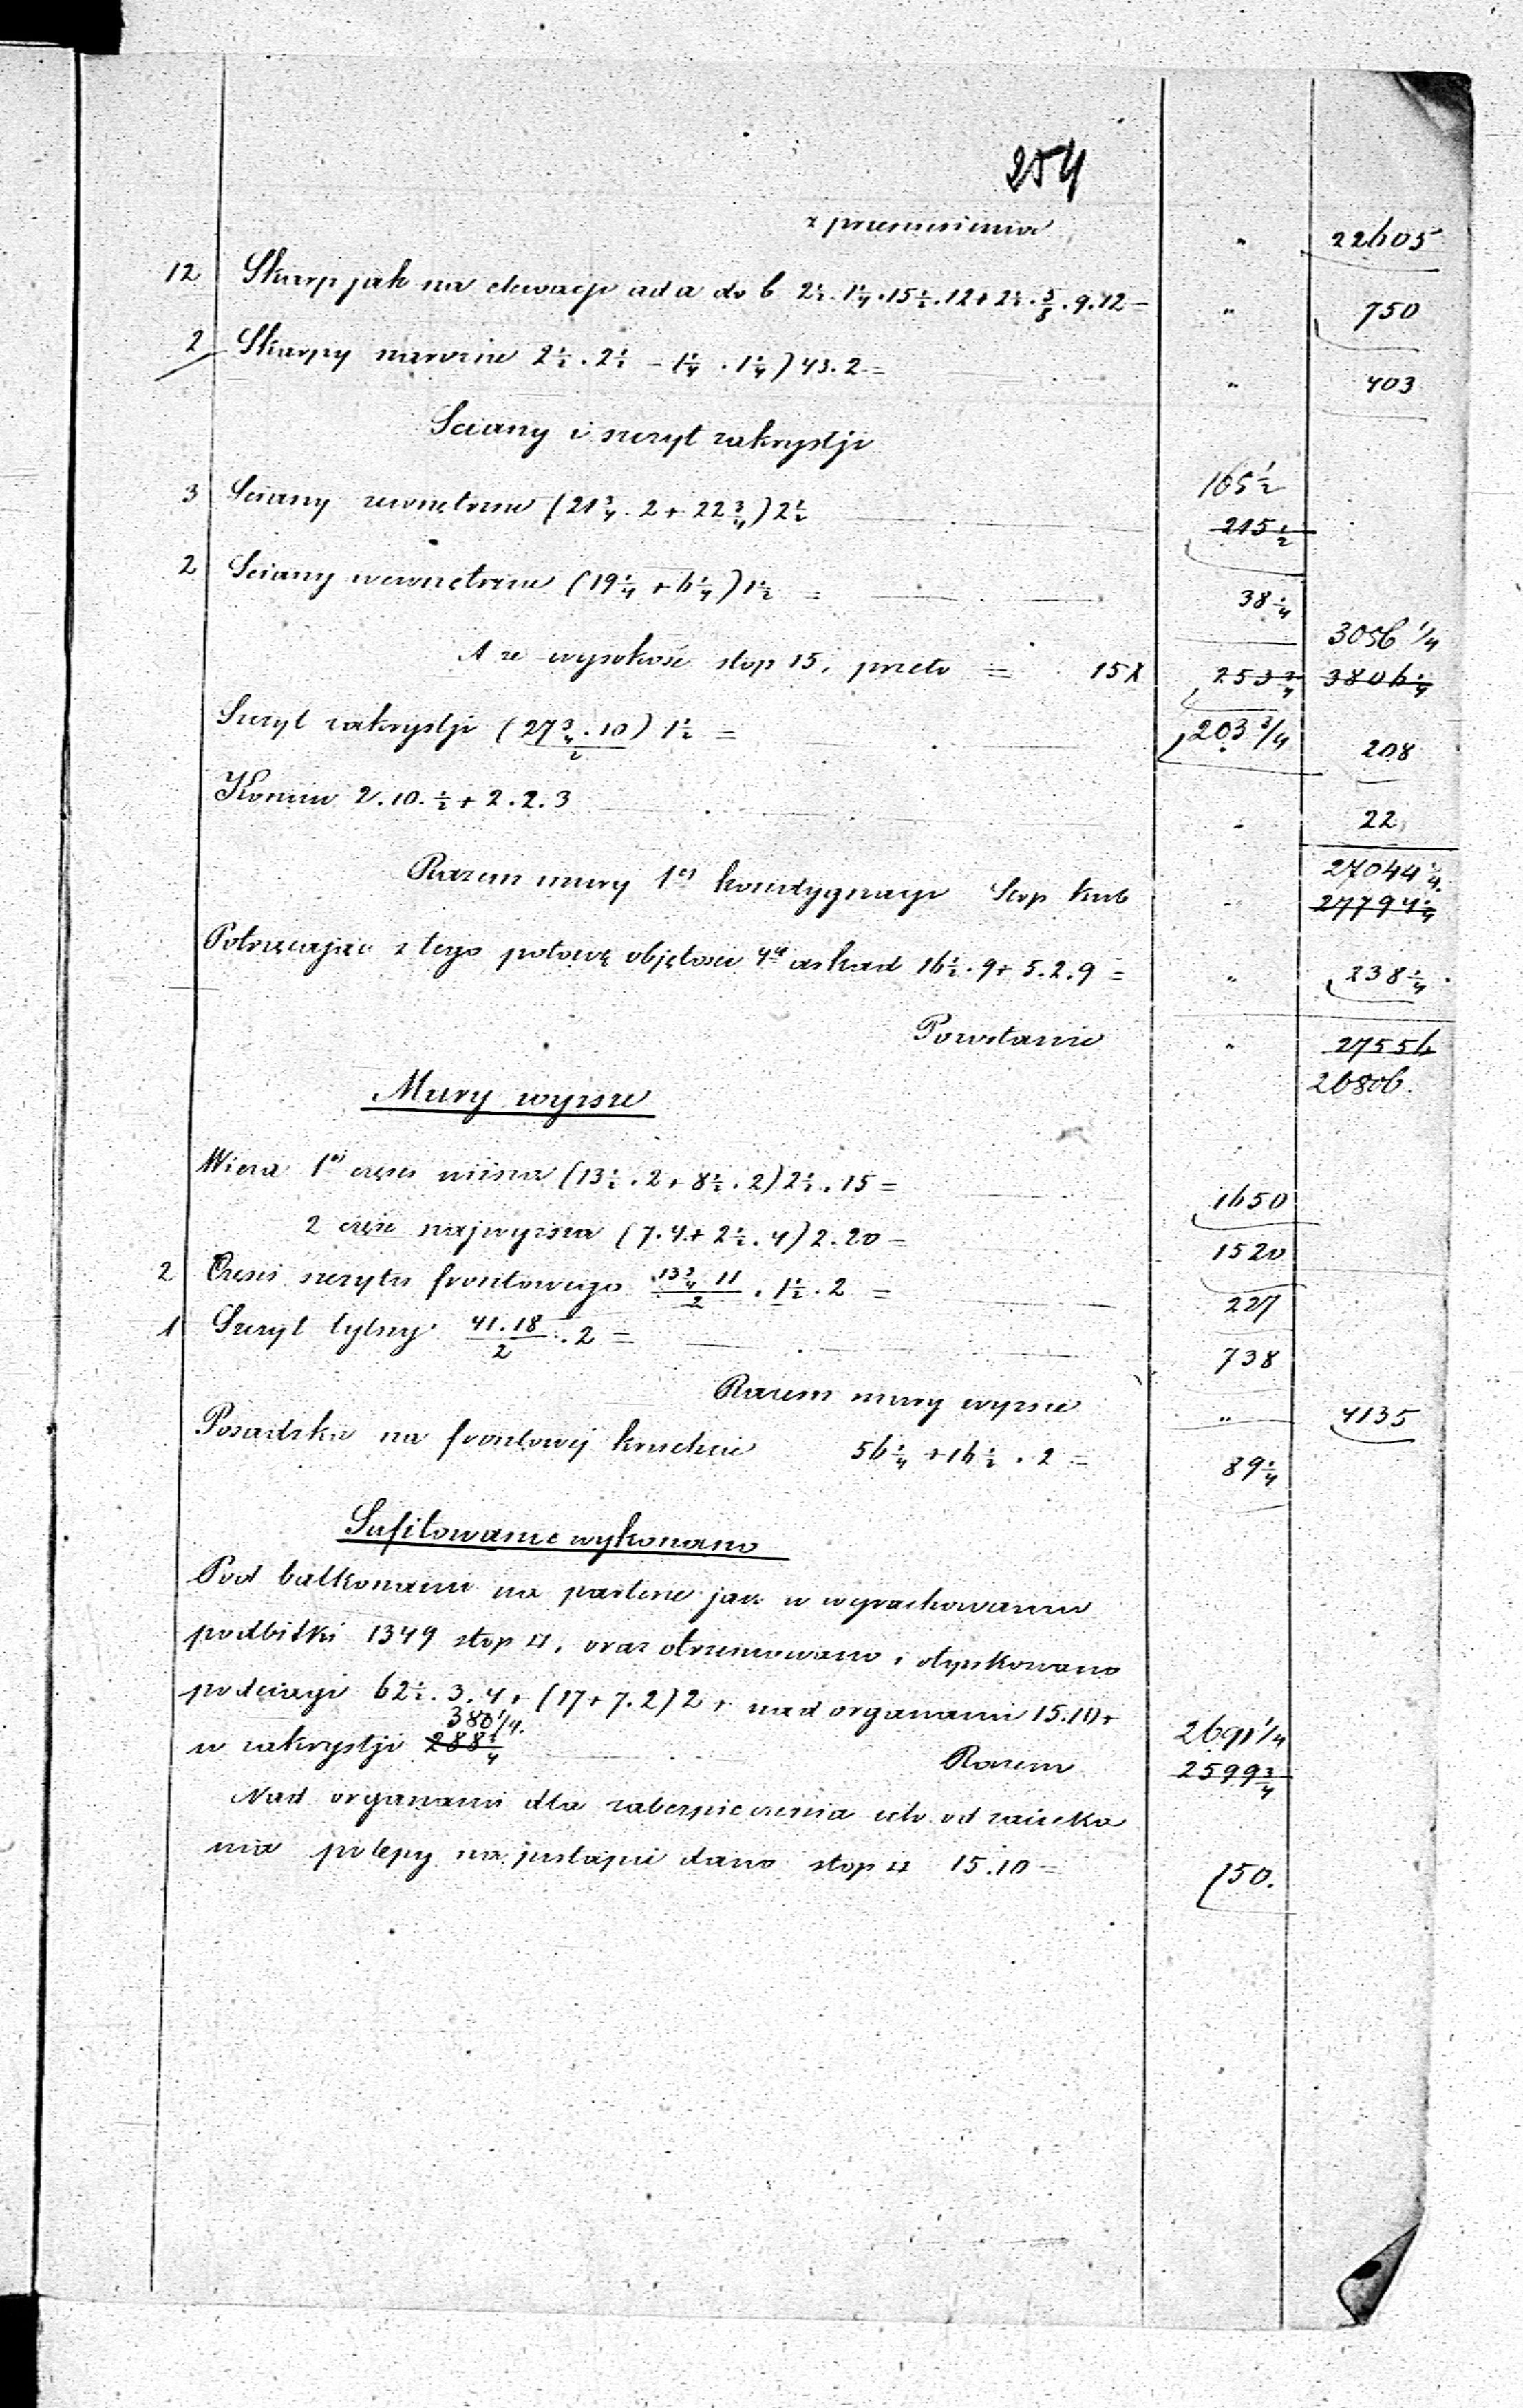 254
z przeniesienia " 22605
12 Skarp jak na elewacji ad a do b 2½.1¼.15½.12+2½.⅝.9.12= " 750
2 Skarpy narożne 2½.2½-1¼.1¼)43.2= " 403
Sciany i szczyt zakrystji
3 Sciany zewnętrzne (21¾.2+22¾)2½ 165½
215½
2 Sciany wewnętrzne (19¼+6¼)1½ = 38¼
3056 1/4
A że wysokość stop 15, przeto = 15X 253¾ 3806¼
Szczyt zakrystji (27¾.10)/2 1½ = 203 3/4 208
Komin 2.10.½+2.2.3 " 22
27044¼
Razem mury 1ej kondygnacji Stop kub " 27794¼
Potrącając z tego połowę objętości 4ch arkad 16½.9+5.2.9= " 238¼
Pozostanie " 27556
26806
Mury wyższe
Wieża 1a częsc niższa (13½.2+8½.2)2½.15= 1650
2 częśc najwyższa (7.4+2½.4)2.20= 1520
2 Części szczytu frontowego 13¾.11/2.1½.2= 227
1 Szczyt tylny 41.18/2.2= 738
Razem mury wyższe " 4135
Posadzka na frontowej kruchcie 56¼+16½.2= 89¼
Sufitowanie wykonano
Pod balkonami na parterze jak w wyrachowaniu
podbitki 1349 stop □, oraz otrzcinowano i otynkowano
podciągi 62½.3.4+(17+7.2)2+ nad organami 15.10+
380 1/4. 2691 1/4
w zakrystji 288¾ Razem 2599¾
Nad organami dla zabezpieczenia ich od zacieka
nia polepy na pułapie dano stop □ 15.10= 150.